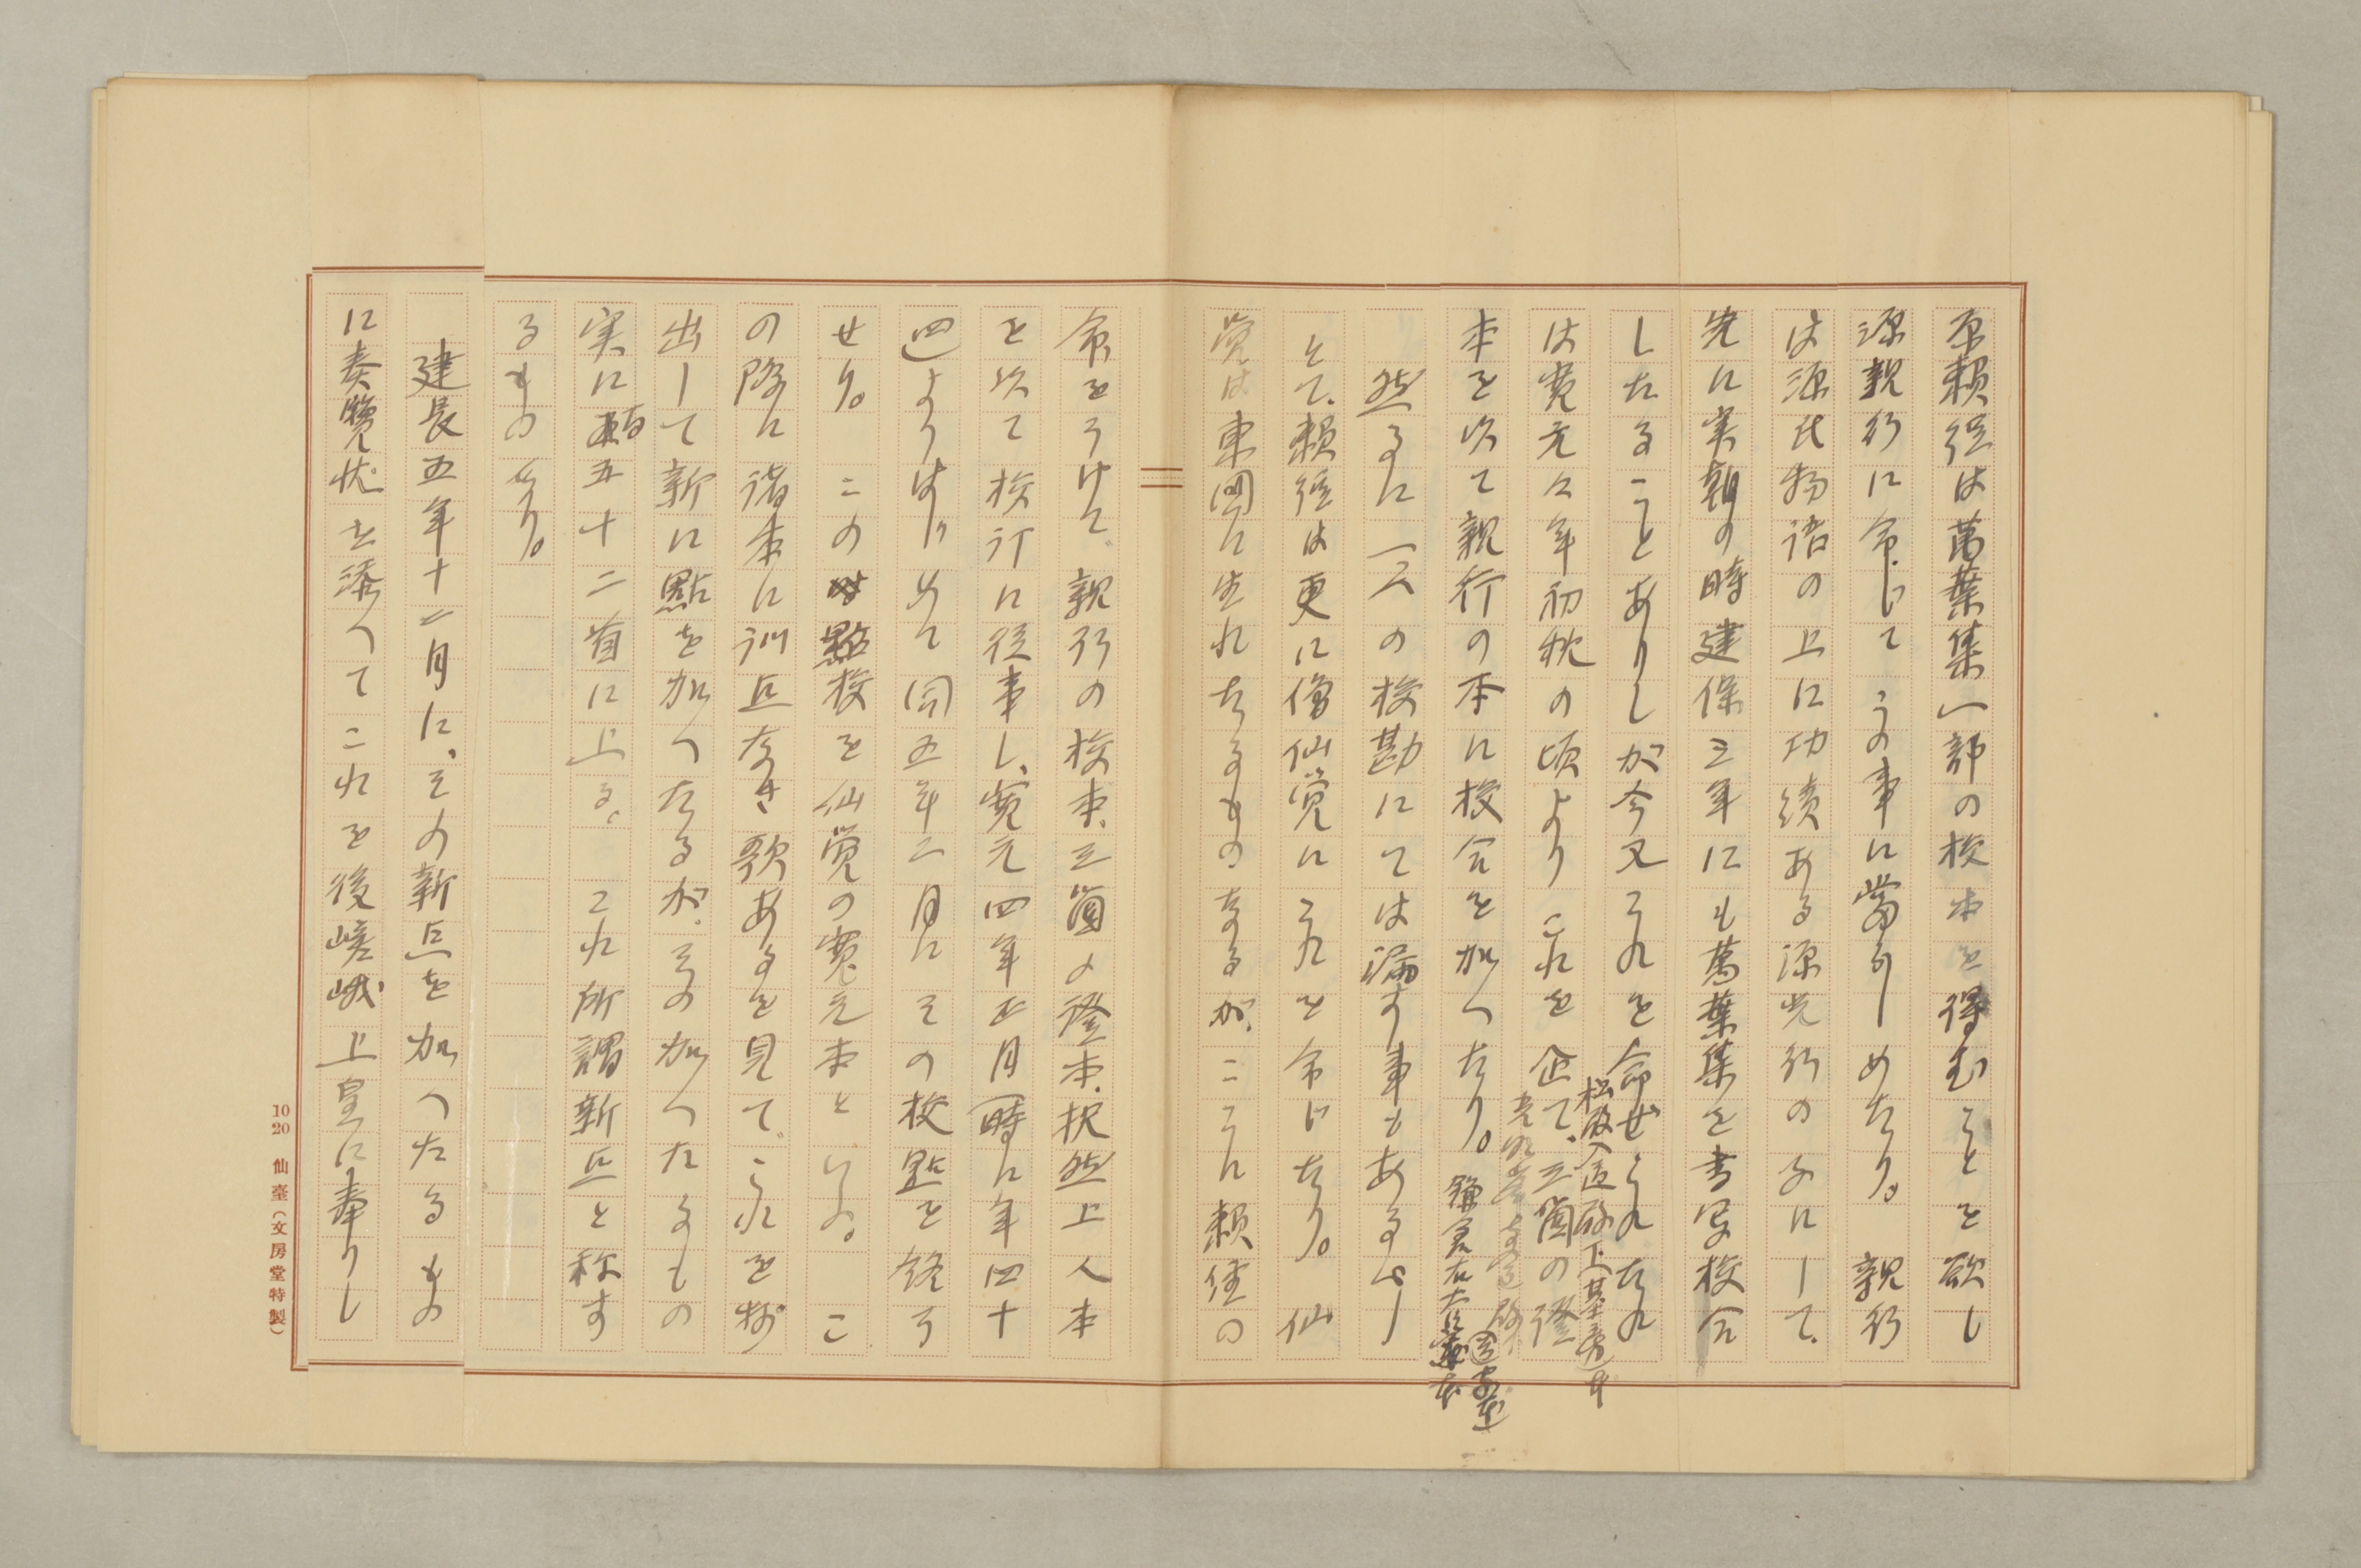 原賴経は萬葉集一部の校本を得むことを欲し
源親行に命じてこの事に當らしめたり。　親行
は源氏物語の上に功績ある源光行の子にして、
先に実朝の時建保三年にも萬葉集を書写校合
したることありしが今又これを命ぜられたれ
は寛元々年初秋の頃よりこれを企て、三箇の證
松殿入道殿下基房
本を以て親行の本に校合を加へたり。
鎌倉右大臣家本
然るに一人の校勘にては漏す事もあるべし
とて、頼経は更に僧仙覚にこれを命じたり。　仙
覚は東國に生れたるものなるが、ここに頼経の
命をうけて、親行の校本、三箇の證本、折然上人本
を以て校訂に従事し、寛元四年正月(時に年四十
四)よりはじめて同五年二月にその校點を終う
せり。　この點校を仙覚の寛元本といふ。　こ
の際に諸本に訓点なき歌あるを見て、これを抄
出して新に點を加へたるが、その加へたるもの
実に百五十二首に上る。　これ所謂新点と称す
るものなり。
建長五年十二月に、その新点を加へたるもの
に奏覽状を添へてこれを後嵯峨上皇に奉りし
10 20 仙臺(文房堂特製)